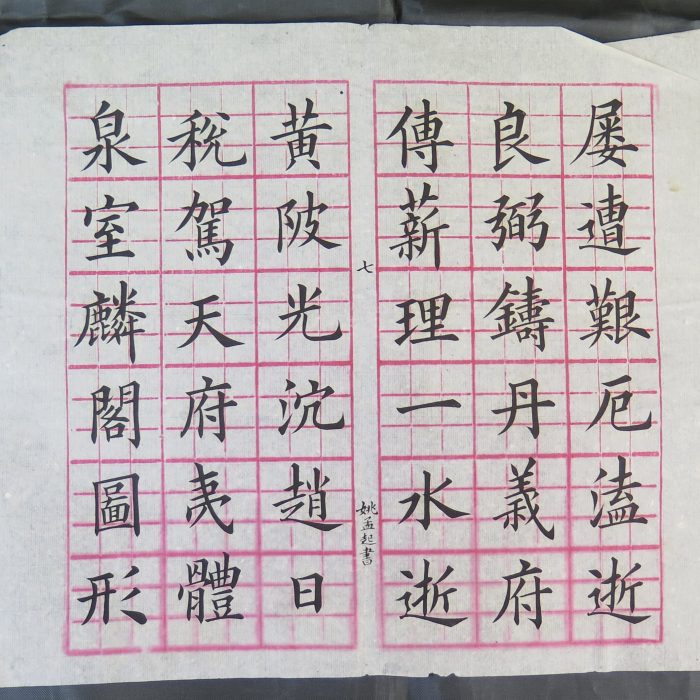 屡遭艱厄溘逝
良弼鑄丹義府
傳薪理一水逝
七
姚孟起書
黄陂光沉趙日
税駕天府夷體
泉室麟閣圖形